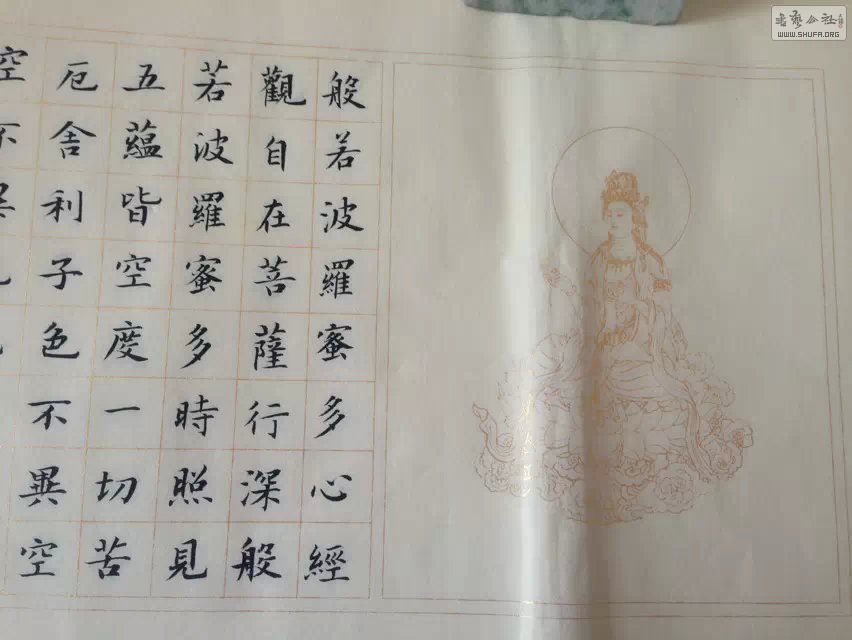 般若波羅蜜多心經
觀自在菩薩行深般
若波羅蜜多時照見
五蘊皆空度一切苦
厄舍利子色不異空
空
书艺公社
WWW.SHUFA.ORG